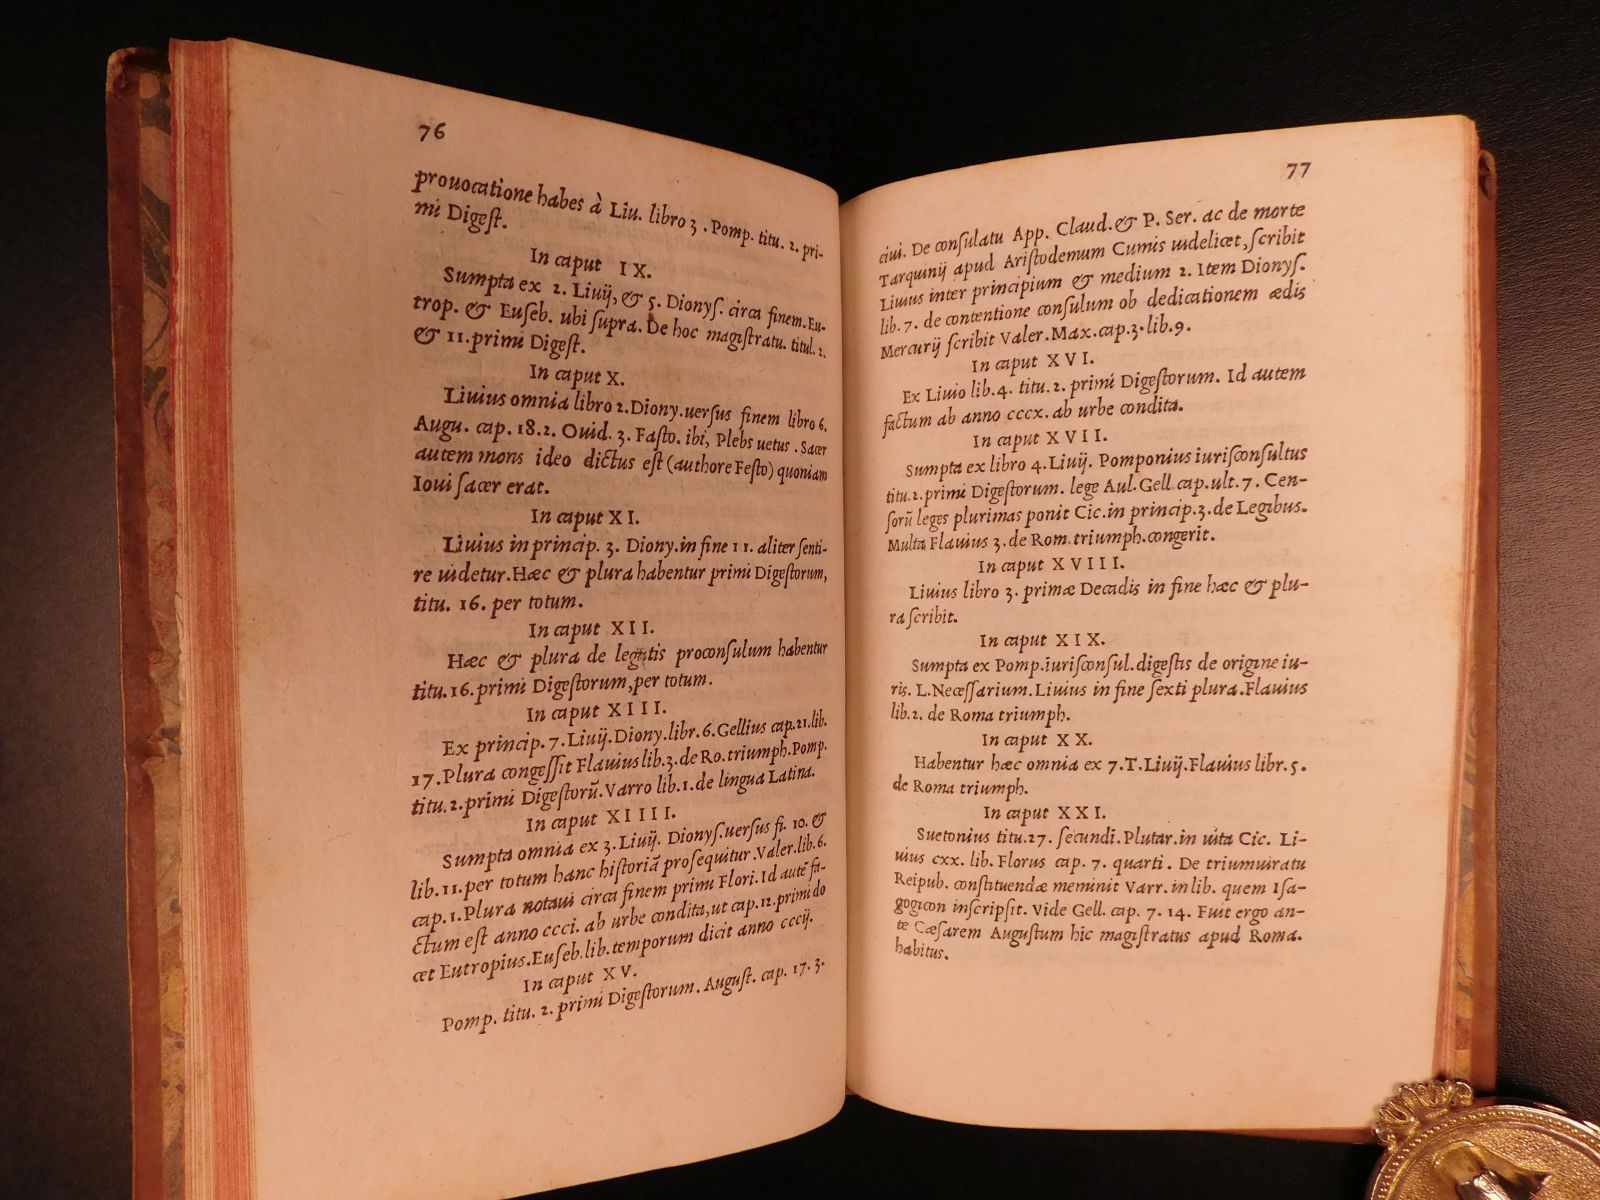 76
prouocatione habes à Liu. libro 3. Pomp. titu. 2. pri-
mi Digeſt.
In caput IX.
Sumpta ex 2. Liuij, & 5. Dionyſ. circa finem. Eu-
trop. & Euſeb. ubi ſupra. De hoc magiſtratu. titul. 2.
& 11. primi Digeſt.
In caput X.
Liuius omnia libro 2. Diony. uerſus finem libro 6.
Augu. cap. 18. 2. Ouid. 3. Faſto. ibi, Plebs uetus. Sacer
autem mons ideo dictus eſt (authore Feſto) quoniam
Ioui ſacer erat.
In caput XI.
Liuius in princip. 3. Diony. in fine 11. aliter ſenti-
re uidetur. Hæc & plura habentur primi Digeſtorum,
titu. 16. per totum.
In caput XII.
Hæc & plura de legatis proconſulum habentur
titu. 16. primi Digeſtorum, per totum.
In caput XIII.
Ex princip. 7. Liuij. Diony. libr. 6. Gellius cap. 21. lib.
17. Plura congeſſit Flauius lib. 3. de Ro. triumph. Pomp.
titu. 2. primi Digeſtorũ. Varro lib. 1. de lingua Latina.
In caput XIIII.
Sumpta omnia ex 3. Liuij. Dionyſ. uerſus fi. 10. &
lib. 11. per totum hanc hiſtoriã proſequitur. Valer. lib. 6.
cap. 1. Plura notaui circa finem primi Flori. Id autẽ fa-
ctum eſt anno ccci. ab urbe condita, ut cap. 12. primi do
cet Eutropius. Euſeb. lib. temporum dicit anno cccij.
In caput XV.
Pomp. titu. 2. primi Digeſtorum. Auguſt. cap. 17. 3.
77
ciui. De conſulatu App. Claud. & P. Ser. ac de morte
Tarquinij apud Ariſtodemum Cumis uidelicet, ſcribit
Liuius inter principium & medium 2. Item Dionyſ.
lib. 7. de contentione conſulum ob dedicationem ædis
Mercurij ſcribit Valer. Max. cap. 3. lib. 9.
In caput XVI.
Ex Liuio lib. 4. titu. 2. primi Digeſtorum. Id autem
factum ab anno cccx. ab urbe condita.
In caput XVII.
Sumpta ex libro 4. Liuij. Pomponius iuriſconſultus
titu. 2. primi Digeſtorum. lege Aul. Gell. cap. ult. 7. Cen-
ſorũ leges plurimas ponit Cic. in princip. 3. de Legibus.
Multa Flauius 3. de Rom. triumph. congerit.
In caput XVIII.
Liuius libro 3. primæ Decadis in fine hæc & plu-
ra ſcribit.
In caput XIX.
Sumpta ex Pomp. iuriſconſul. digeſtis de origine iu-
ris. L. Neceſſarium. Liuius in fine ſexti plura. Flauius
lib. 2. de Roma triumph.
In caput XX.
Habentur hæc omnia ex 7. T. Liuij. Flauius libr. 5.
de Roma triumph.
In caput XXI.
Suetonius titu. 27. ſecundi. Plutar. in uita Cic. Li-
uius cxx. lib. Florus cap. 7. quarti. De triumuiratu
Reipub. conſtituendæ meminit Varr. in lib. quem Iſa-
gogicon inſcripſit. Vide Gell. cap. 7. 14. Fuit ergo an-
te Cæſarem Auguſtum hic magiſtratus apud Roma.
habitus.